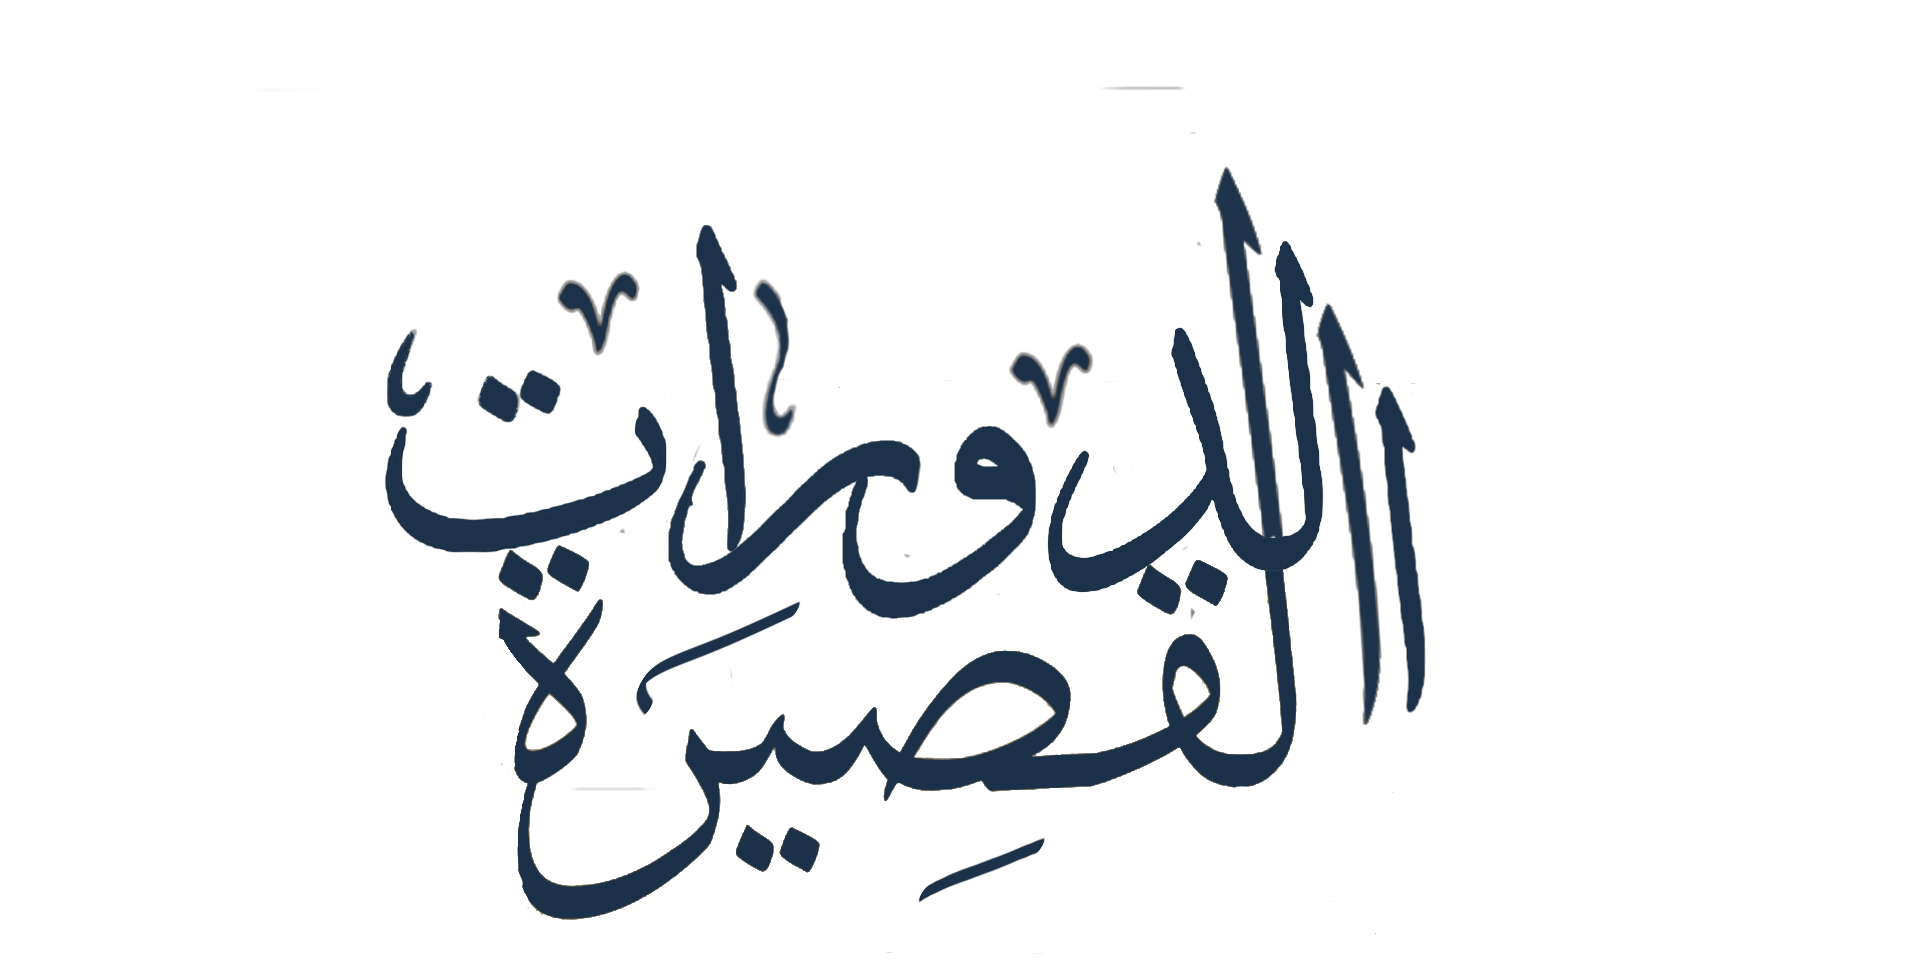 الدورات
القصيرة